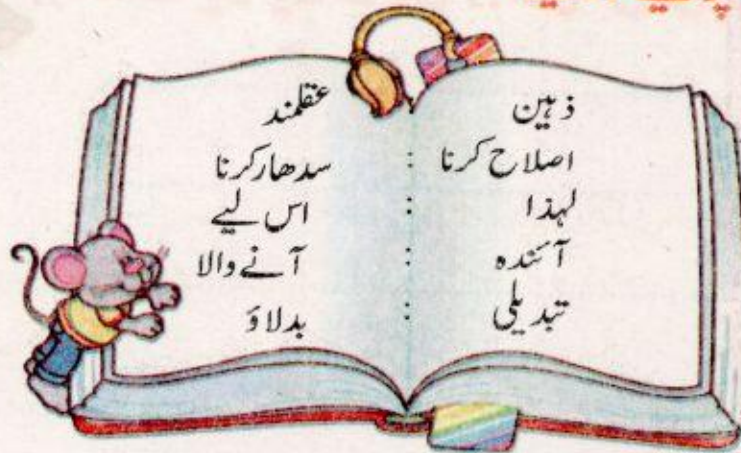 ذہین عقلمند
اصلاح کرنا : سدھار کرنا
لہذا : اس لیے
آئندہ : آنے والا
تبدیلی : بدلاؤ